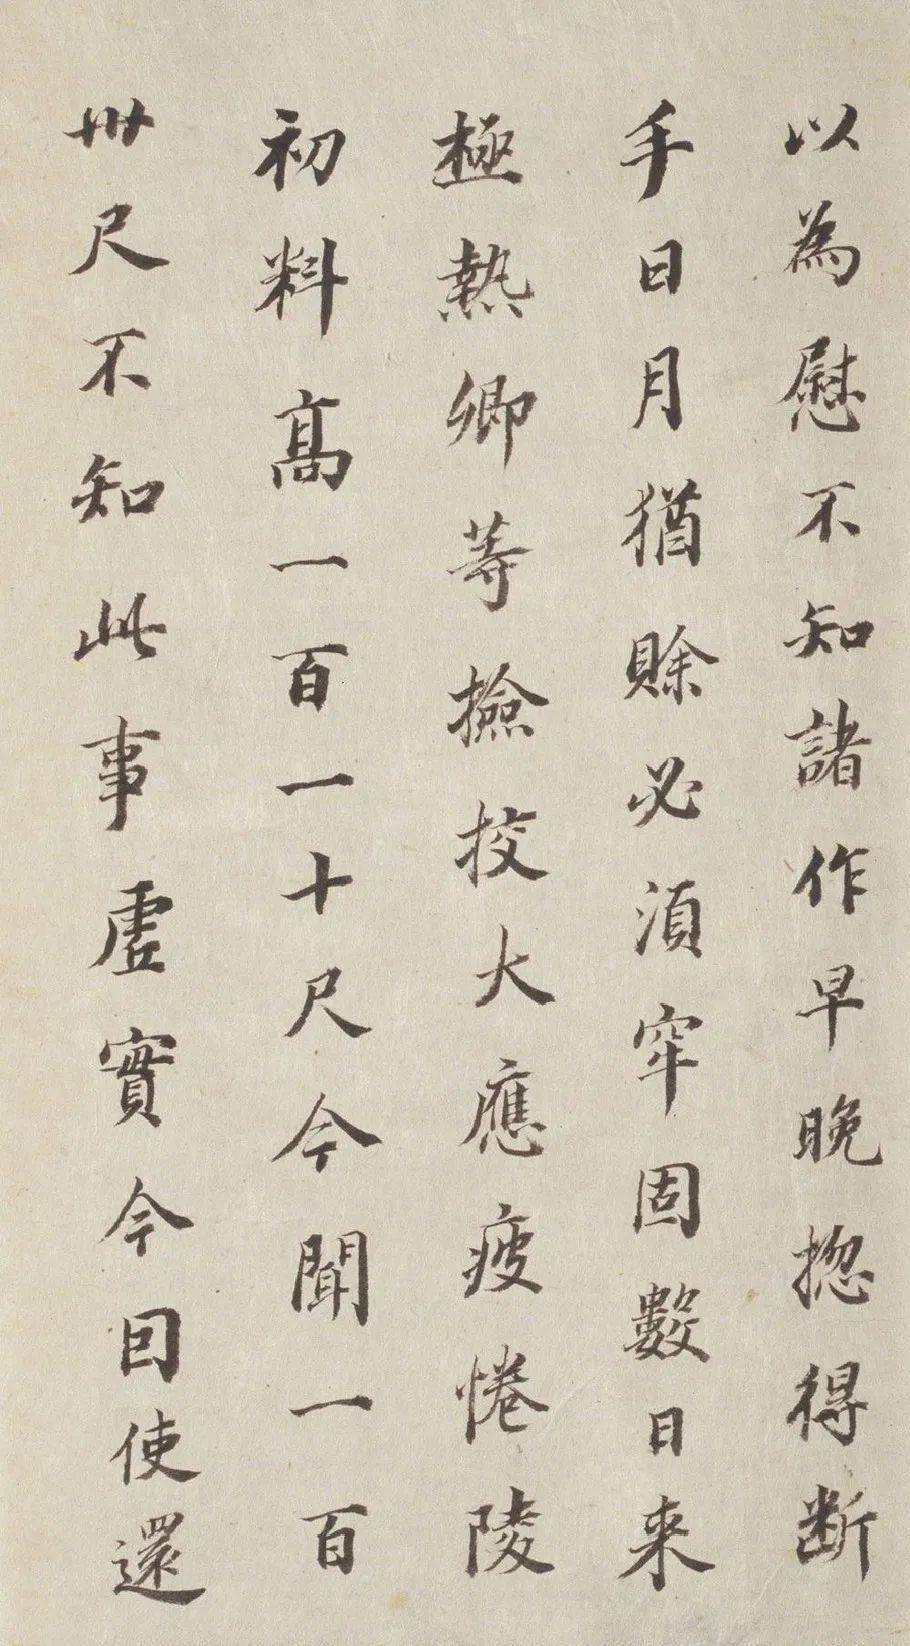 以為慰不知諸作早晚揔得断
手日月猶賒必湏牢固數日来
極熱卿等撿挍大應疲惓陵
初料髙一百一十尺今聞一百
卅尺不知此事虛實今囙使還